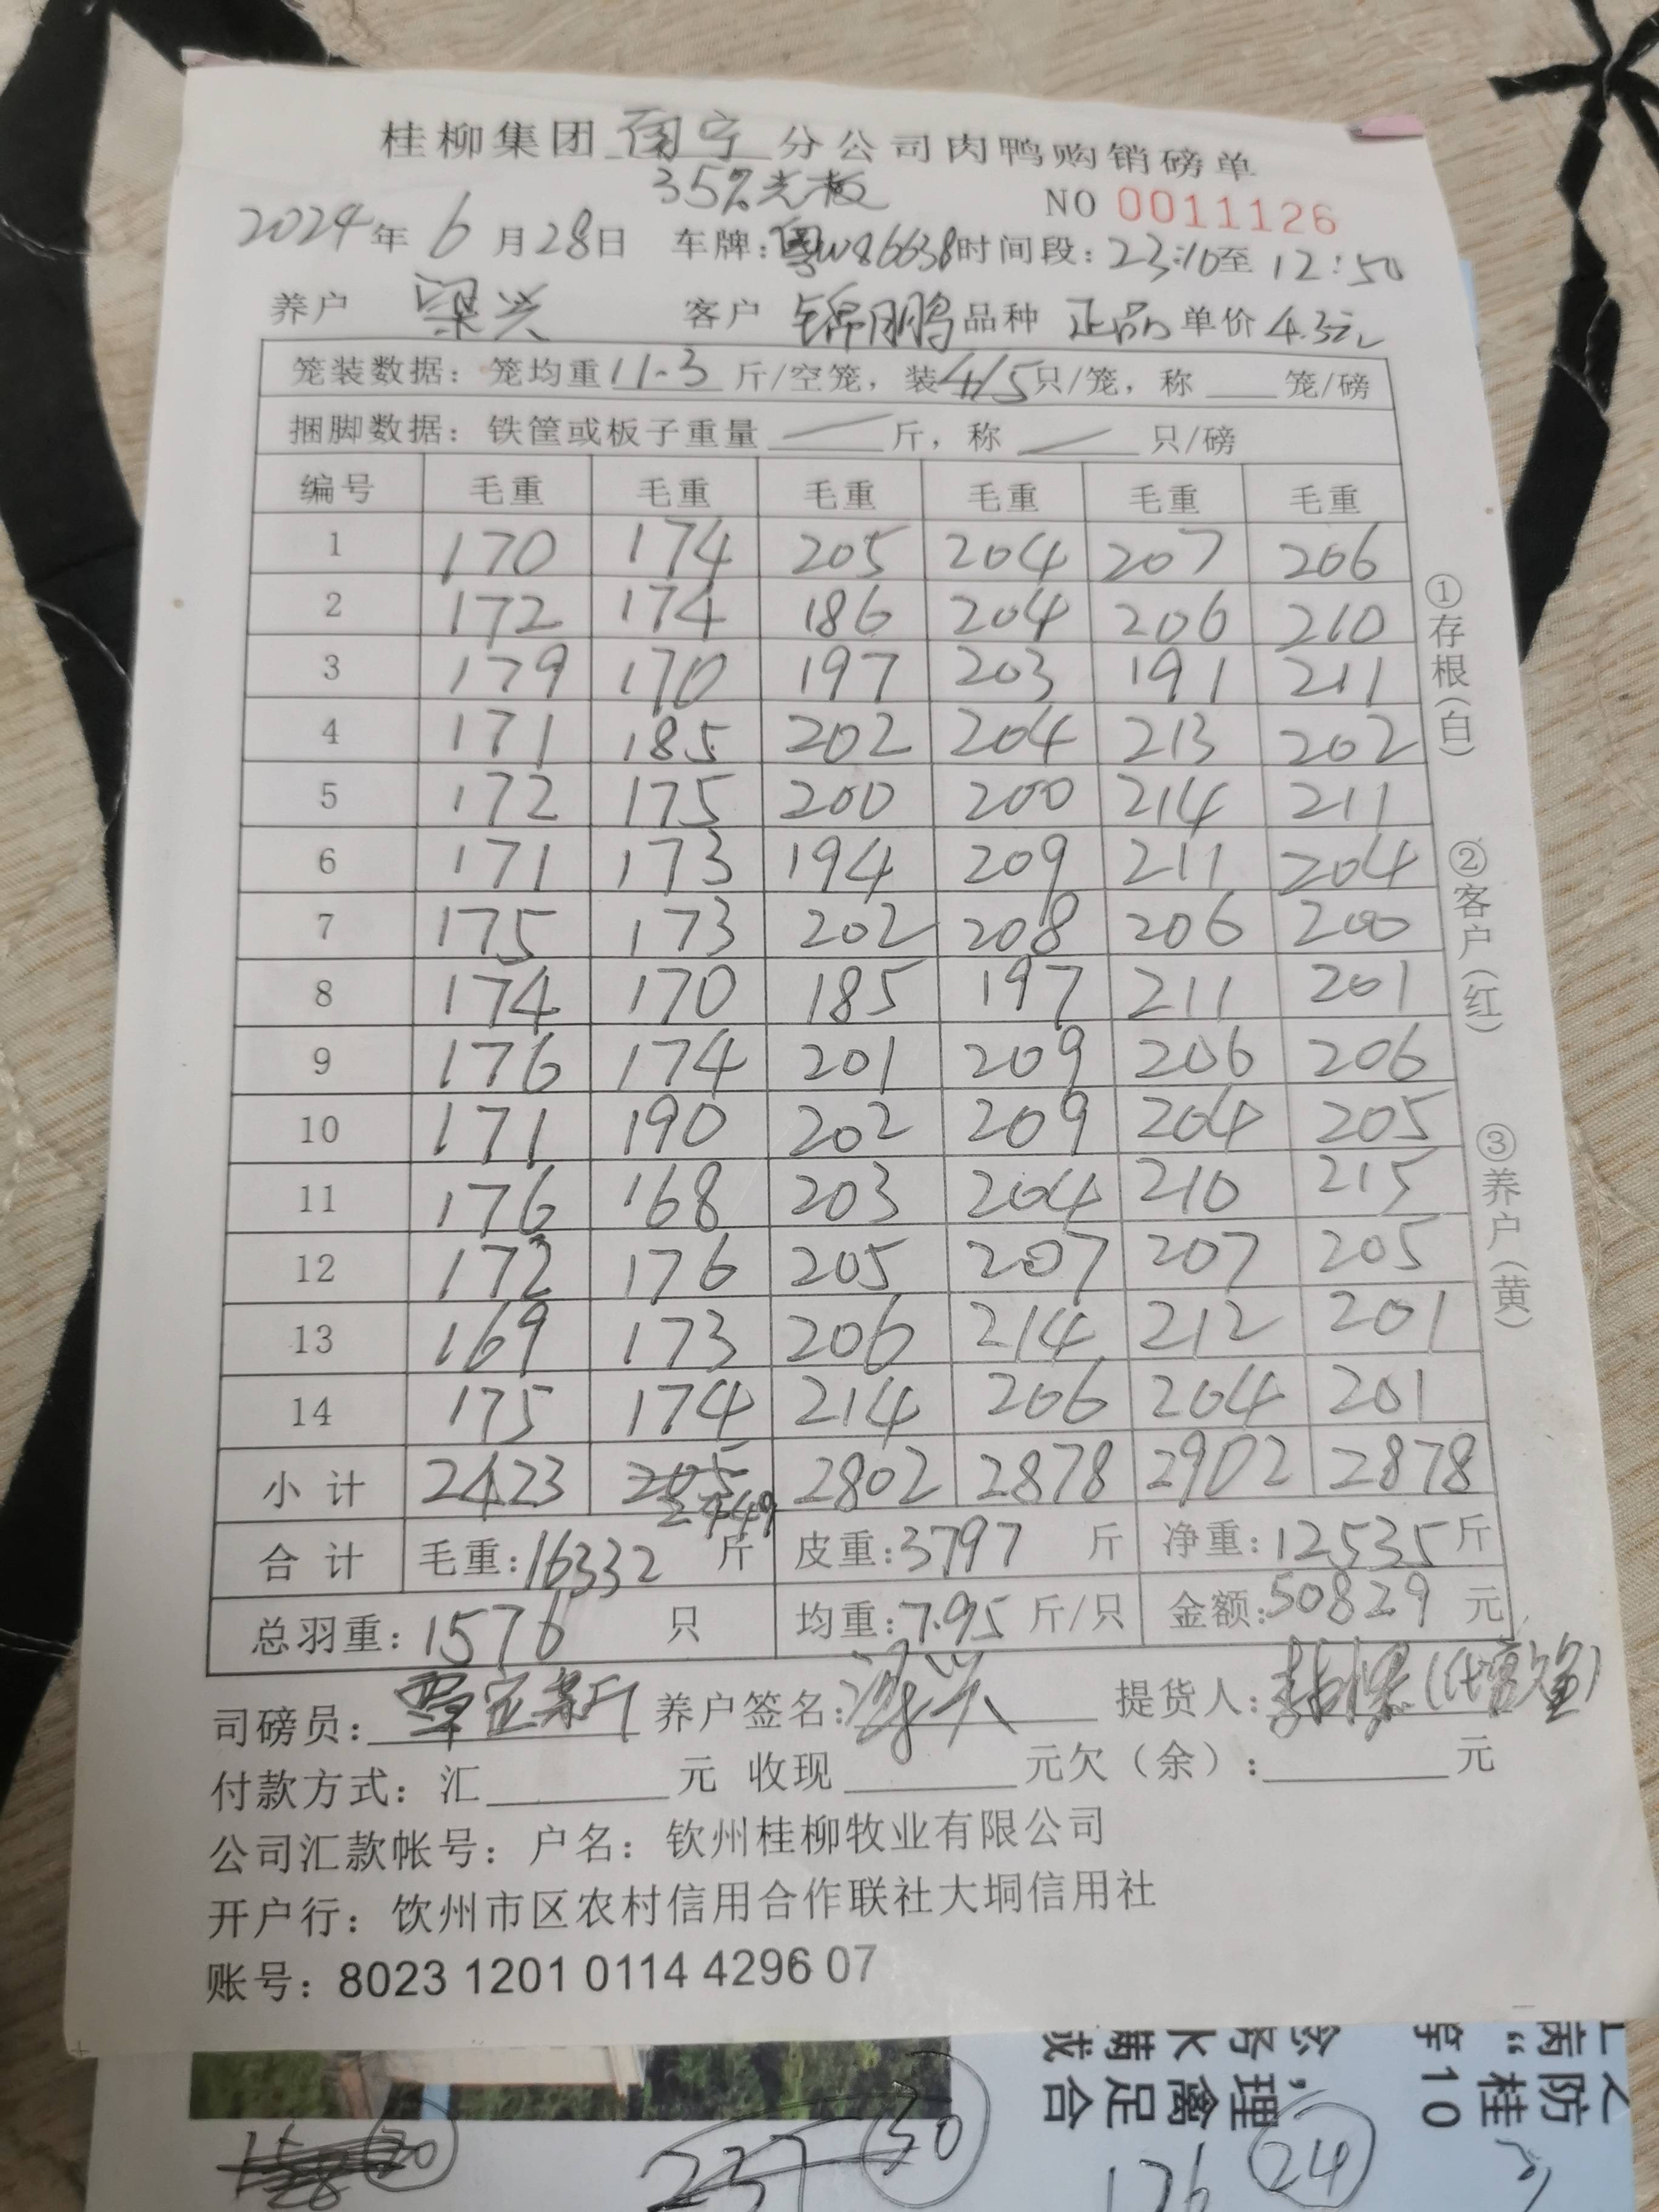 桂柳集团南宁分公司肉鸭购销磅单
35%光板
NO 0011126
2024年6月28日 车牌:粤W86638 时间段:23:10至12:50
养户 梁兴 客户 锦鹏 品种 正品 单价 4.3元
笼装数据：笼均重11.3斤/空笼，装4/5只/笼，称 笼/磅
捆脚数据：铁筐或板子重量 斤，称 只/磅
编号 毛重 毛重 毛重 毛重 毛重 毛重
1 170 174 205 204 207 206
2 172 174 186 204 206 210
3 179 170 197 203 191 211
4 171 185 202 204 213 202
5 172 175 200 200 214 211
6 171 173 194 209 211 204
7 175 173 202 208 206 200
8 174 170 185 197 211 201
9 176 174 201 209 206 206
10 171 190 202 209 204 205
11 176 168 203 204 210 215
12 172 176 205 207 207 205
13 169 173 206 214 212 201
14 175 174 214 206 204 201
小计 2423 2449 2802 2878 2902 2878
合计 毛重:16332 斤 皮重:3797 斤 净重:12535斤
总羽重:1576 只 均重:7.95斤/只 金额:50829 元
①存根(白)
②客户(红)
③养户(黄)
司磅员: 养户签名:梁兴 提货人:
付款方式：汇 元 收现 元欠（余）: 元
公司汇款帐号：户名：钦州桂柳牧业有限公司
开户行：钦州市区农村信用合作联社大垌信用社
账号：8023 1201 0114 4296 07
30
237
30
176
24